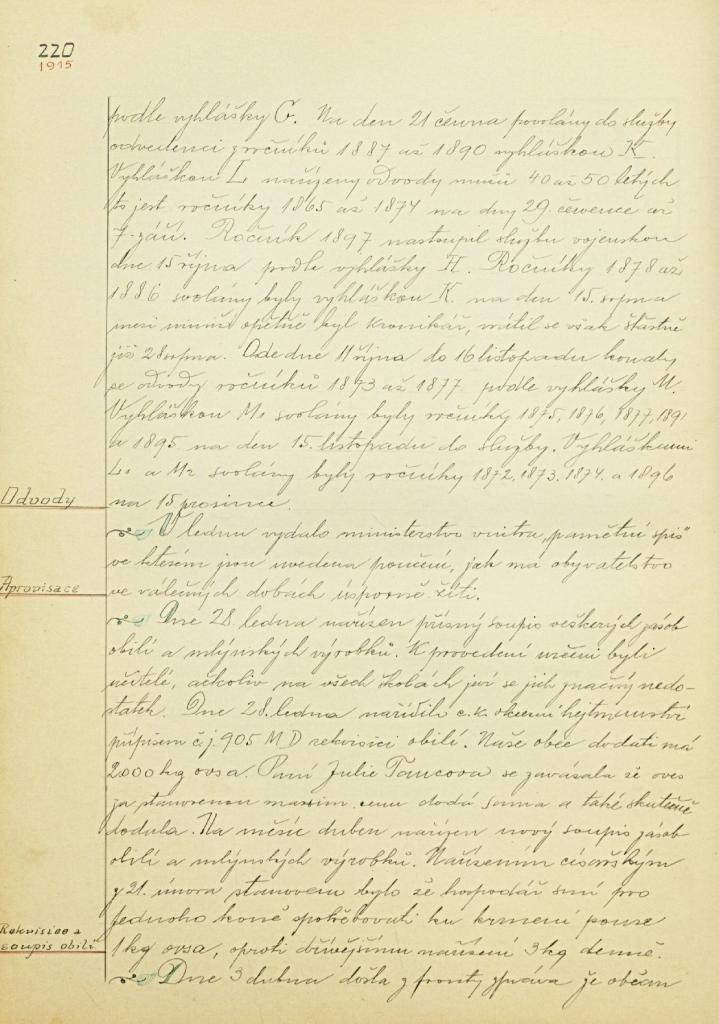 220
1915
podle vyhlášky G. Na den 21 června povolány do služby
odvedenci z ročníků 1887 až 1890 vyhláškou K.
Vyhláškou L nařízeny odvody mužů 40 až 50 letých
to jest ročníky 1865 až 1874 na dny 29. července až
7. září. Ročník 1897 nastoupil službu vojenskou
dne 15 října podle vyhlášky H. Ročníky 1878 až
1886 svolány byly vyhláškou K. na den 15. srpna
mezi nimiž opětně byl kronikář, vrátil se však šťastně
již 28 srpna. Ode dne 11 října do 16 listopadu konaly
se odvody ročníků 1873 až 1877 podle vyhlášky M.
Vyhláškou M1 svolány byly ročníky 1875, 1876, 1877, 1891
a 1895 na den 15. listopadu do služby. Vyhláškami
L1 a M2 svolány byly ročníky 1872, 1873, 1874 a 1896
Odvody
na 15 prosince.
V lednu vydalo ministerstvo vnitra „pamětní spis"
ve kterém jsou uvedena poučení, jak má obyvatelstvo
Aprovisace
ve válečných dobách úsporně žíti.
Dne 28. ledna nařízen přísný soupis veškerých zásob
obilí a mlýnských výrobků. K provedení určeni byli
učitelé, ačkoliv na všech školách jeví se jich značný nedo-
statek. Dne 28. ledna nařídilo c. k. okresní hejtmanství
přípisem č. j. 905 M D rekvisici obilí. Naše obec dodati má
2000 kg ovsa. Paní Julie Tancova se zavázala že oves
za stanovenou maxim. cenu dodá sama a také skutečně
dodala. Na měsíc duben nařízen nový soupis zásob
obilí a mlýnských výrobků. Nařízením císařským
z 21. února stanoveno bylo že hospodář smí pro
jednoho koně spotřebovati ku krmení pouze
Rekvisice a
soupis obilí
1 kg ovsa, oproti dřívějšímu nařízení 3 kg denně.
Dne 3 dubna došla z fronty zpráva že občan